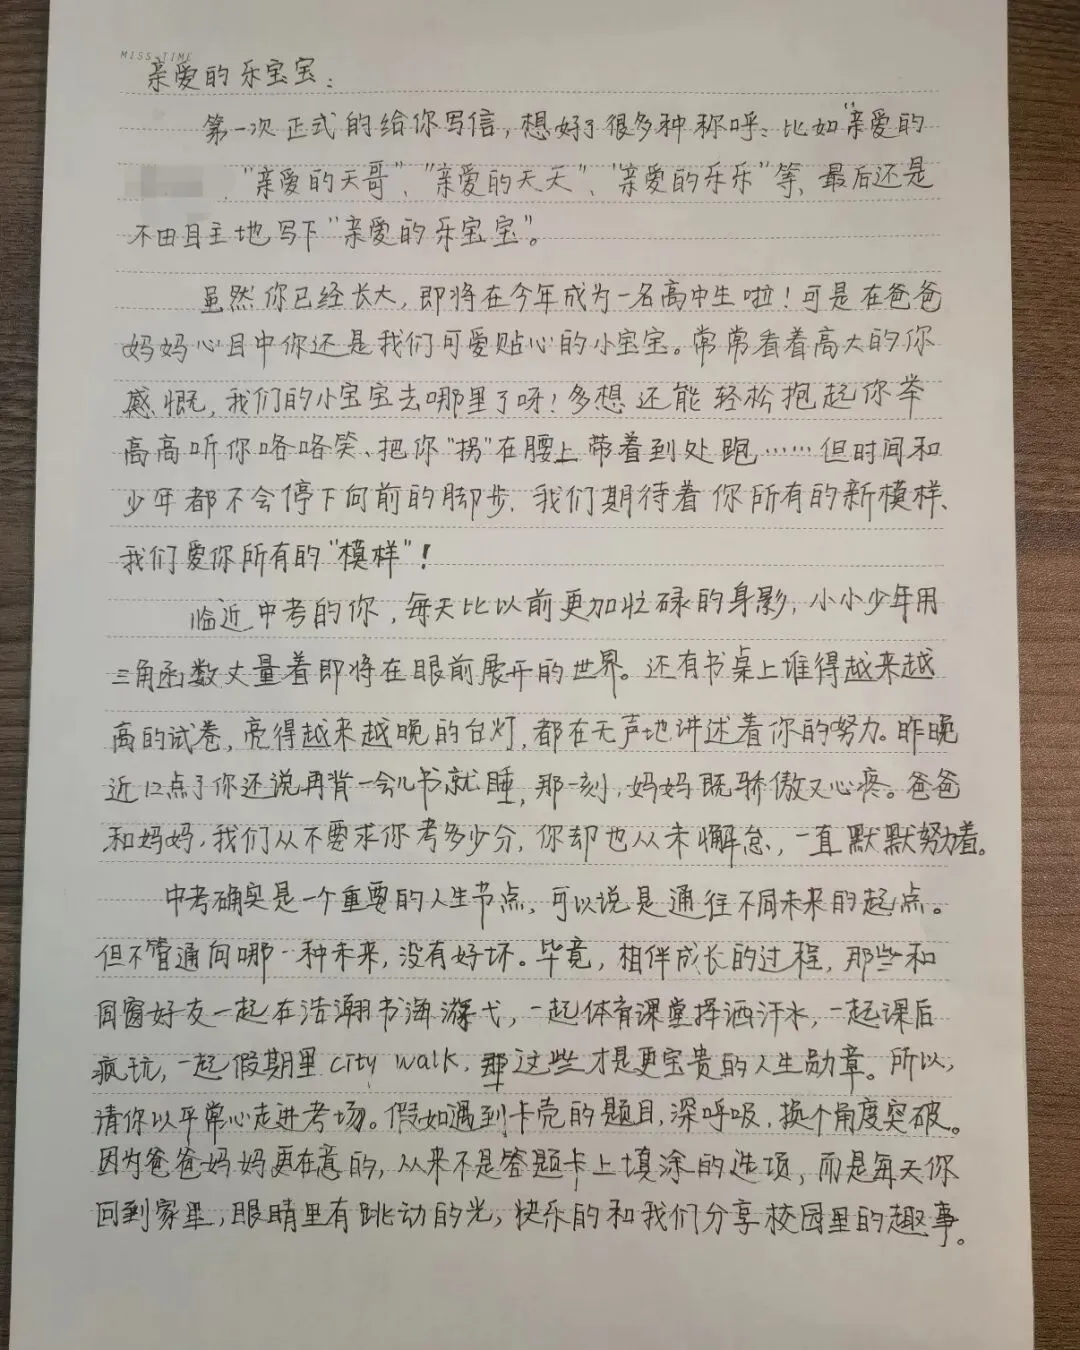 MISS-TIME
亲爱的乐宝宝：
第一次正式的给你写信，想好了很多种称呼：比如"亲爱的
"亲爱的天哥"、"亲爱的天天"、"亲爱的乐乐"等，最后还是
不由自主地写下"亲爱的乐宝宝"。
虽然你已经长大，即将在今年成为一名高中生啦！可是在爸爸
妈妈心目中你还是我们可爱贴心的小宝宝。常常看着高大的你
感慨，我们的小宝宝去哪里了呀！多想还能轻松抱起你举
高高听你咯咯笑、把你"拐"在腰上带着到处跑……但时间和
少年都不会停下向前的脚步，我们期待着你所有的新模样、
我们爱你所有的"模样"！
临近中考的你，每天比以前更加忙碌的身影，小小少年用
三角函数丈量着即将在眼前展开的世界。还有书桌上堆得越来越
高的试卷，亮得越来越晚的台灯，都在无声地讲述着你的努力。昨晚
近12点了你还说再背一会儿书就睡，那一刻，妈妈既骄傲又心疼。爸爸
和妈妈，我们从不要求你考多少分，你却也从未懈怠，一直默默努力着。
中考确实是一个重要的人生节点，可以说是通往不同未来的起点。
但不管通向哪一种未来，没有好坏。毕竟，相伴成长的过程，那些和
同窗好友一起在浩瀚书海游弋，一起体育课堂挥洒汗水，一起课后
疯玩，一起假期里city walk，这些才是更宝贵的人生勋章。所以，
请你以平常心走进考场。假如遇到卡壳的题目，深呼吸，换个角度突破。
因为爸爸妈妈更在意的，从来不是答题卡上填涂的选项，而是每天你
回到家里，眼睛里有跳动的光，快乐的和我们分享校园里的趣事。